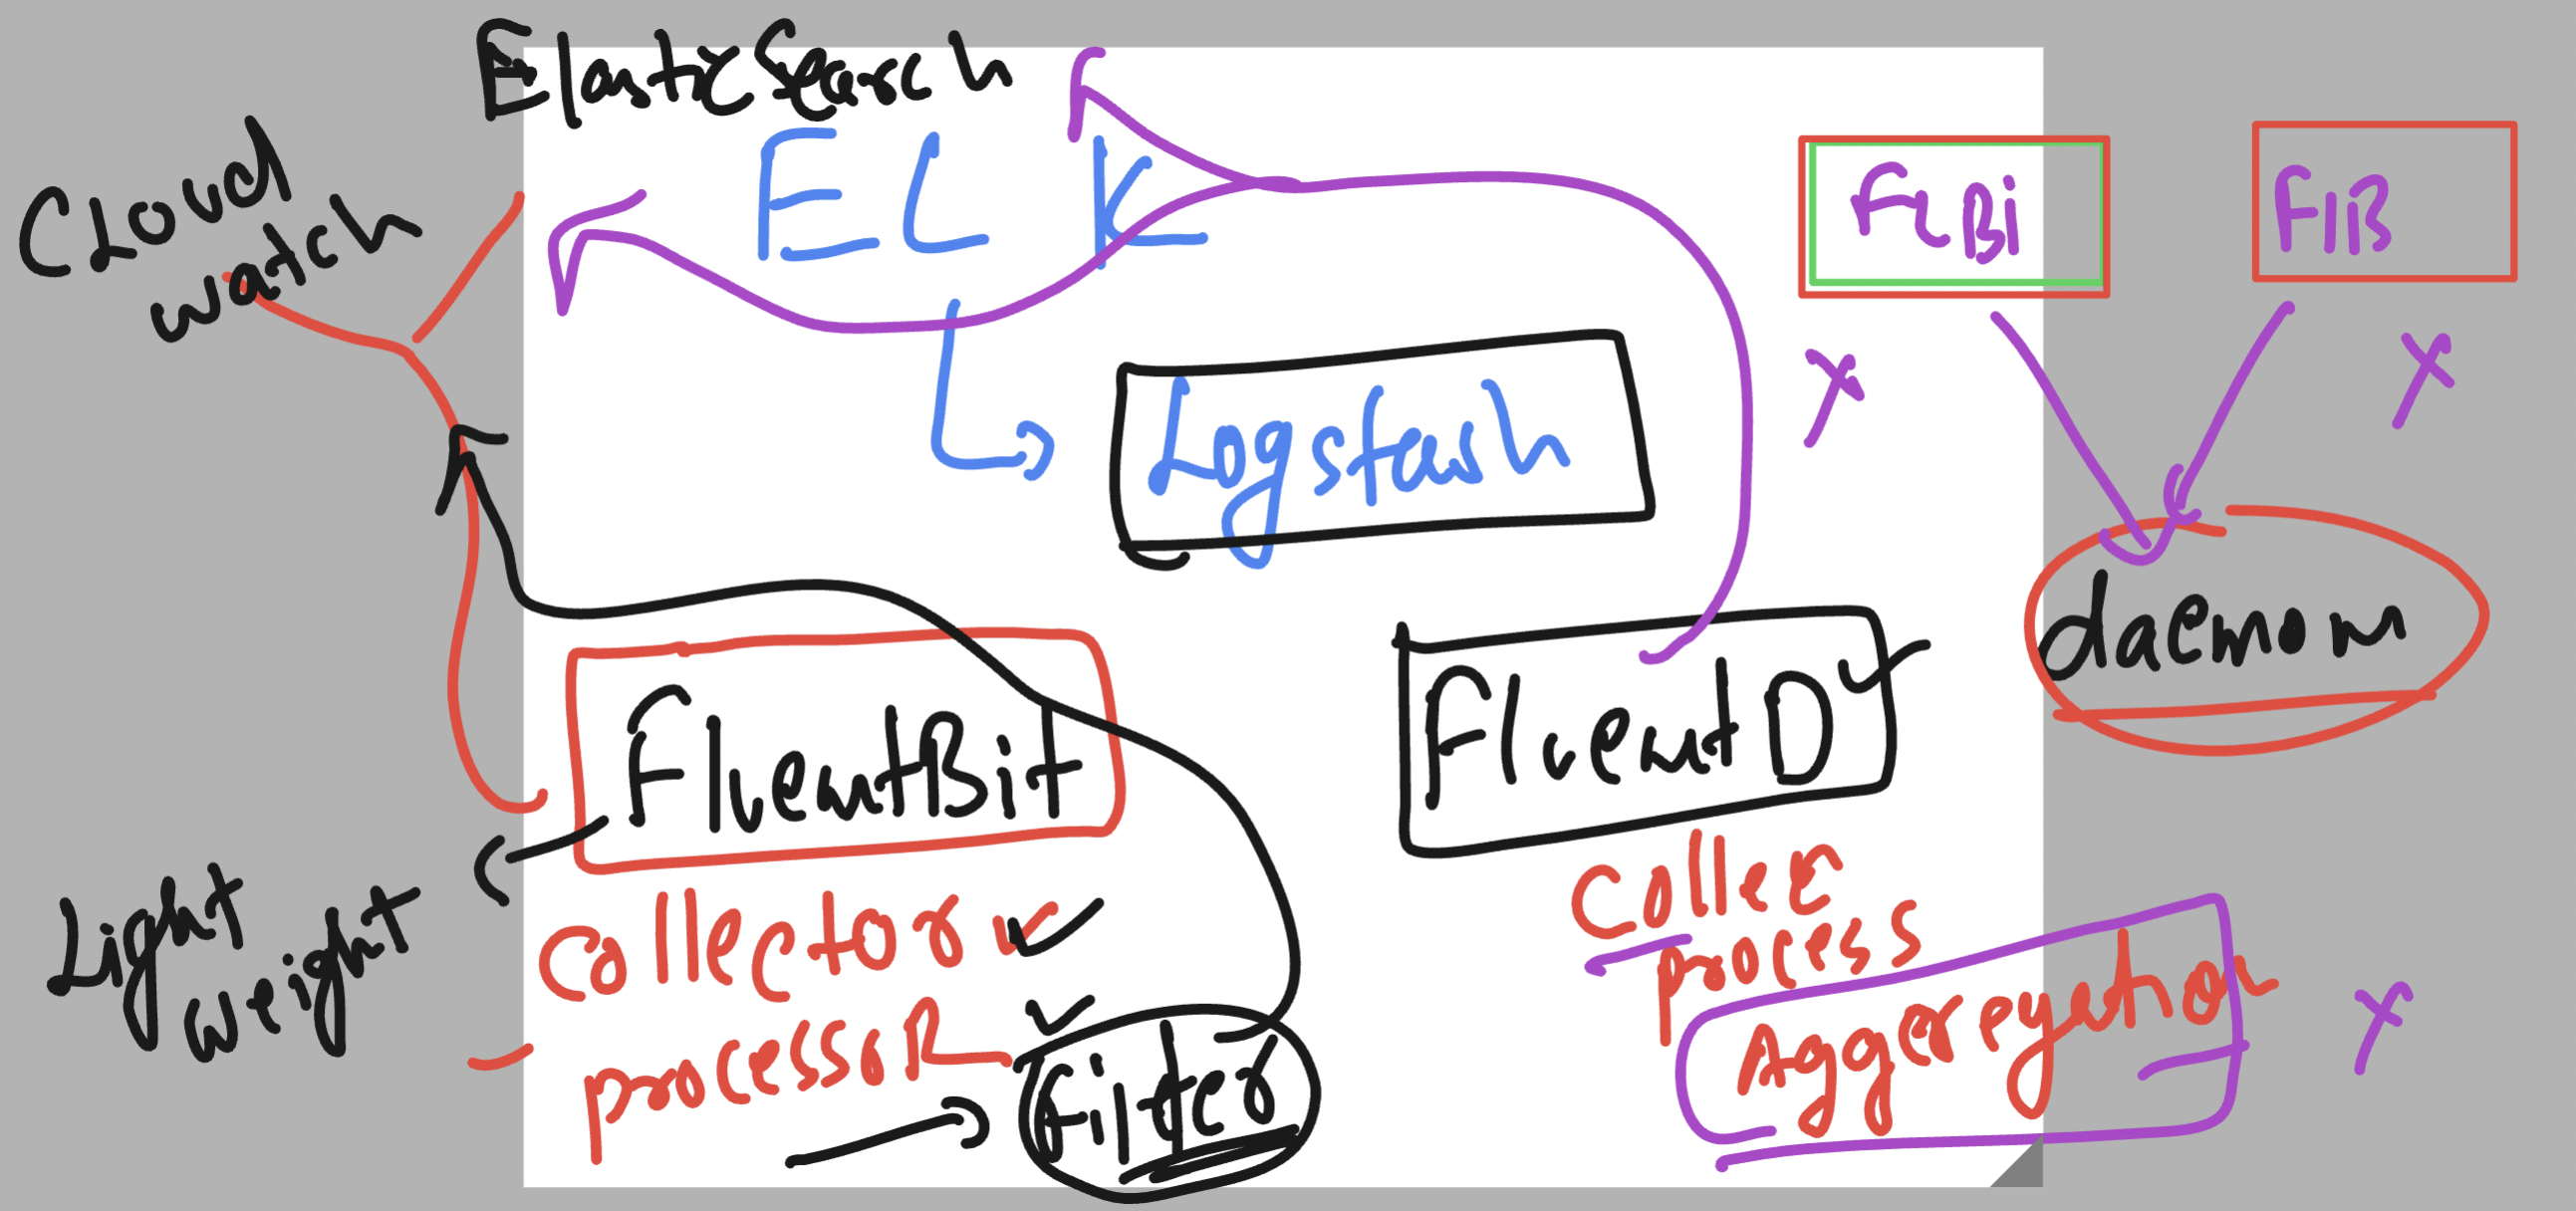 ElasticSearch
Cloud
watch
E L K
FLBi
FlB
Logstash
daemon
FluentBit
FluentD
Light
weight
Collector
processor
Filter
Collec
process
Aggeregation